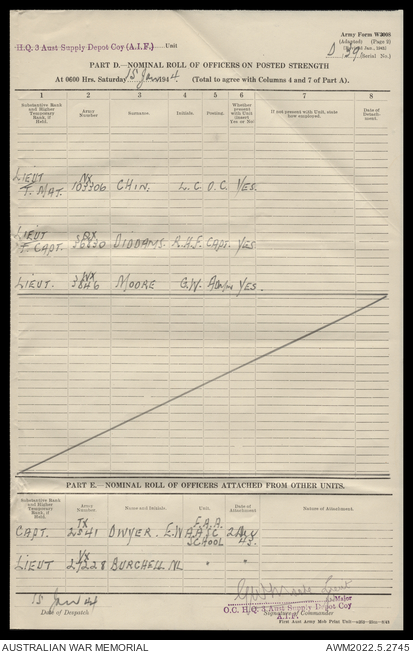 Army Form W3008
(Adapted) (Page 2)
H.Q. 3 Aust Supply Depot Coy (A.I.F.) Unit
(Serial No.)
PART D.—NOMINAL ROLL OF OFFICERS ON POSTED STRENGTH
At 0600 Hrs. Saturday 15 Jan 1944 (Total to agree with Columns 4 and 7 of Part A).
1 2 3 4 5 6 7 8
Substantive Rank and Higher Temporary Rank, if Held. Army Number Surname Initials. Posting. Whether present with unit (insert Yes or No) If not present with Unit, state how employed. Date of Detachment.
LIEUT NX
T. MAJ. 107306 CHIN. L.C. O.C. YES.
LIEUT
T/ CAPT. DIDDAMS. R.H.F. CAPT. YES
LIEUT. 3846 MOORE G.W. YES.
PART E.—NOMINAL ROLL OF OFFICERS ATTACHED FROM OTHER UNITS.
Substantive Rank and Higher Temporary Rank, if Held Army Number Name and Initials. Unit. Date of Attachment Nature of Attachment.
CAPT. TX 2541 DWYER. E.W A.A.S.C SCHOOL 43.
LIEUT VX BURCHELL. N.L " "
15 Jan 44
Date of Despatch
Major
O.C. H.Q. 3 Aust Supply Depot Coy
A.I.F.
Signature of Commander
AUSTRALIAN WAR MEMORIAL
AWM2022.5.2745